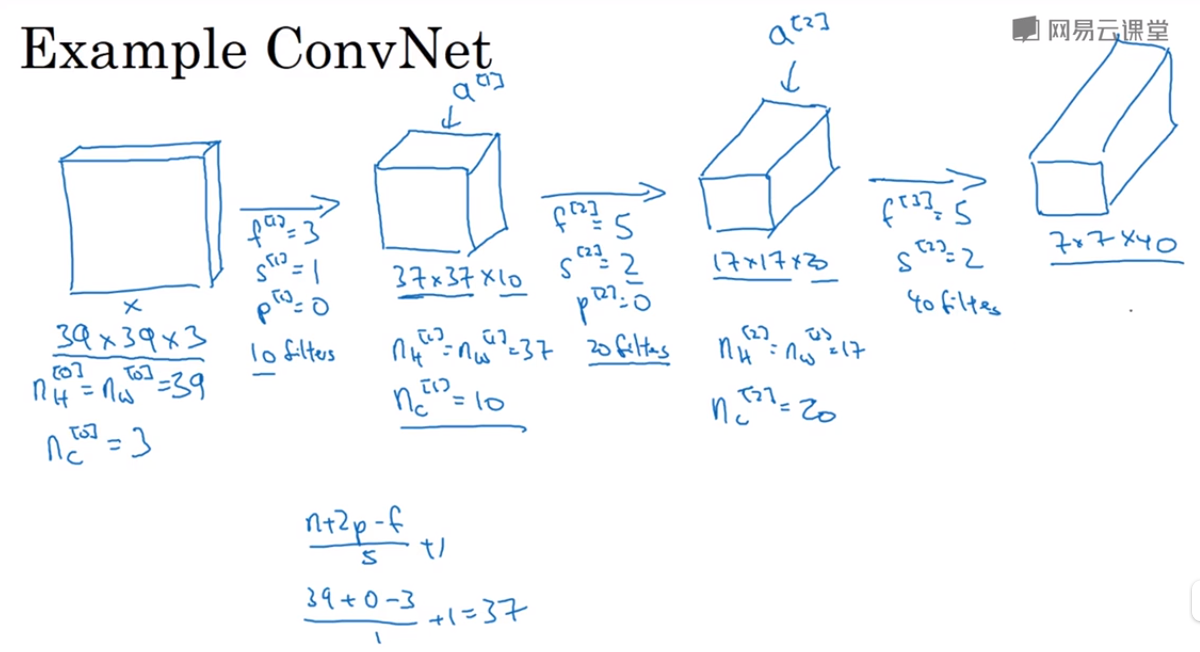 Example ConvNet
网易云课堂
a^[1]
a^[2]
x
39×39×3
n_H^[0] = n_W^[0] = 39
n_C^[0] = 3
f^[1] = 3
s^[1] = 1
p^[1] = 0
10 filters
37×37×10
n_H^[1] = n_W^[1] = 37
n_C^[1] = 10
f^[2] = 5
s^[2] = 2
p^[2] = 0
20 filters
17×17×20
n_H^[2] = n_W^[2] = 17
n_C^[2] = 20
f^[3] = 5
s^[2] = 2
40 filters
7×7×40
n+2p-f
s
+1
39+0-3
1
+1=37